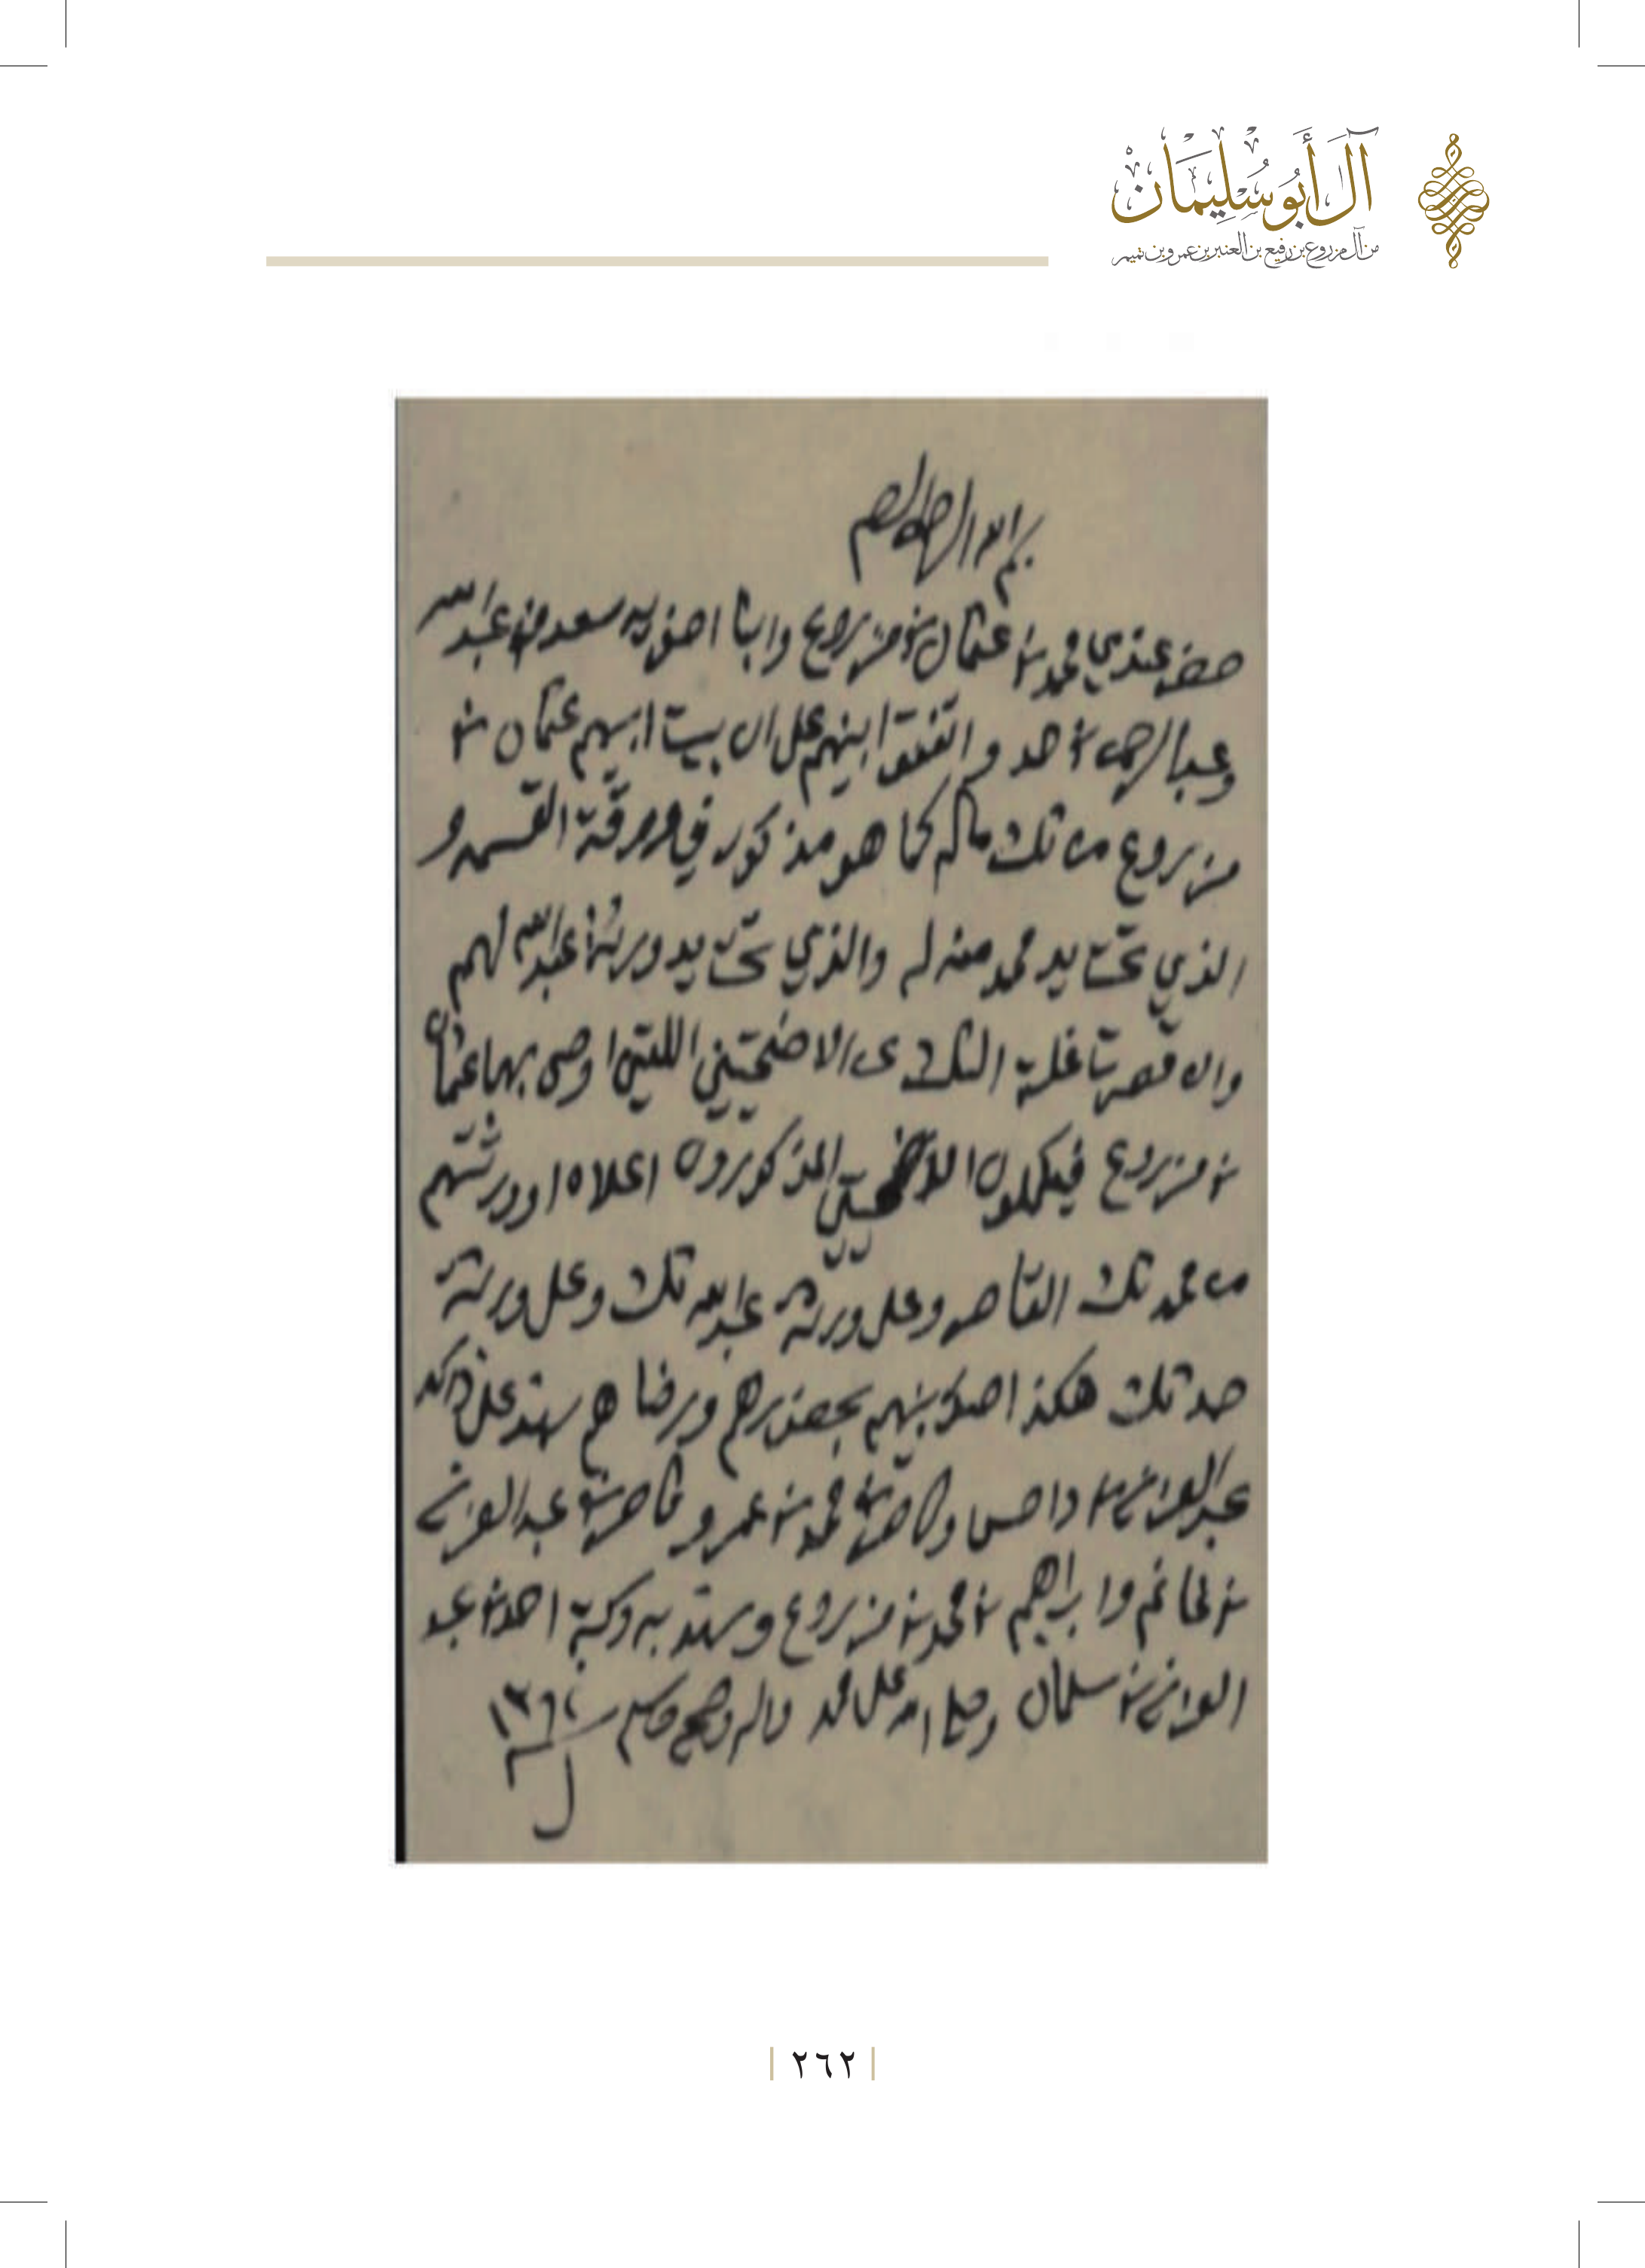 آل أبو سليمان
من آل مزروع بن رفيع بن العنبر بن عمرو بن تميم
بسم الله الرحمن الرحيم
حضر عندي محمد بن عثمان بن مزروع وابنا اخويه سعد بن عبدالله
وعبدالرحمن بن حمد واتفقوا بينهم على ان بيت ابيهم عثمان بن
مزروع من ثلث ماله كما هو مذكور في ورقة القسمه و
الذي تحت يد محمد منه له والذي تحت يد ورثة عبدالله لهم
وان قصرت غلة الثلث عن الاضحيتين اللتين اوصى بهما عثمان
بن مزروع فيكملون الاضحيتين المذكورون اعلاه او ورثتهم
من محمد ثلث القاصر وعلى ورثة عبدالله ثلث وعلى ورثة
حمد ثلث هكذا صار بينهم بحضرهم ورضاهم شهد على ذالك
عبدالعزيز بن داحس و محمد بن عمر و ناصر بن عبدالعزيز
بن غانم وابراهيم بن محمد بن مزروع وشهد به وكتبه احمد بن عبد
العزيز بن سلمان وصلى الله على محمد واله وصحبه وسلم
٢٦٢